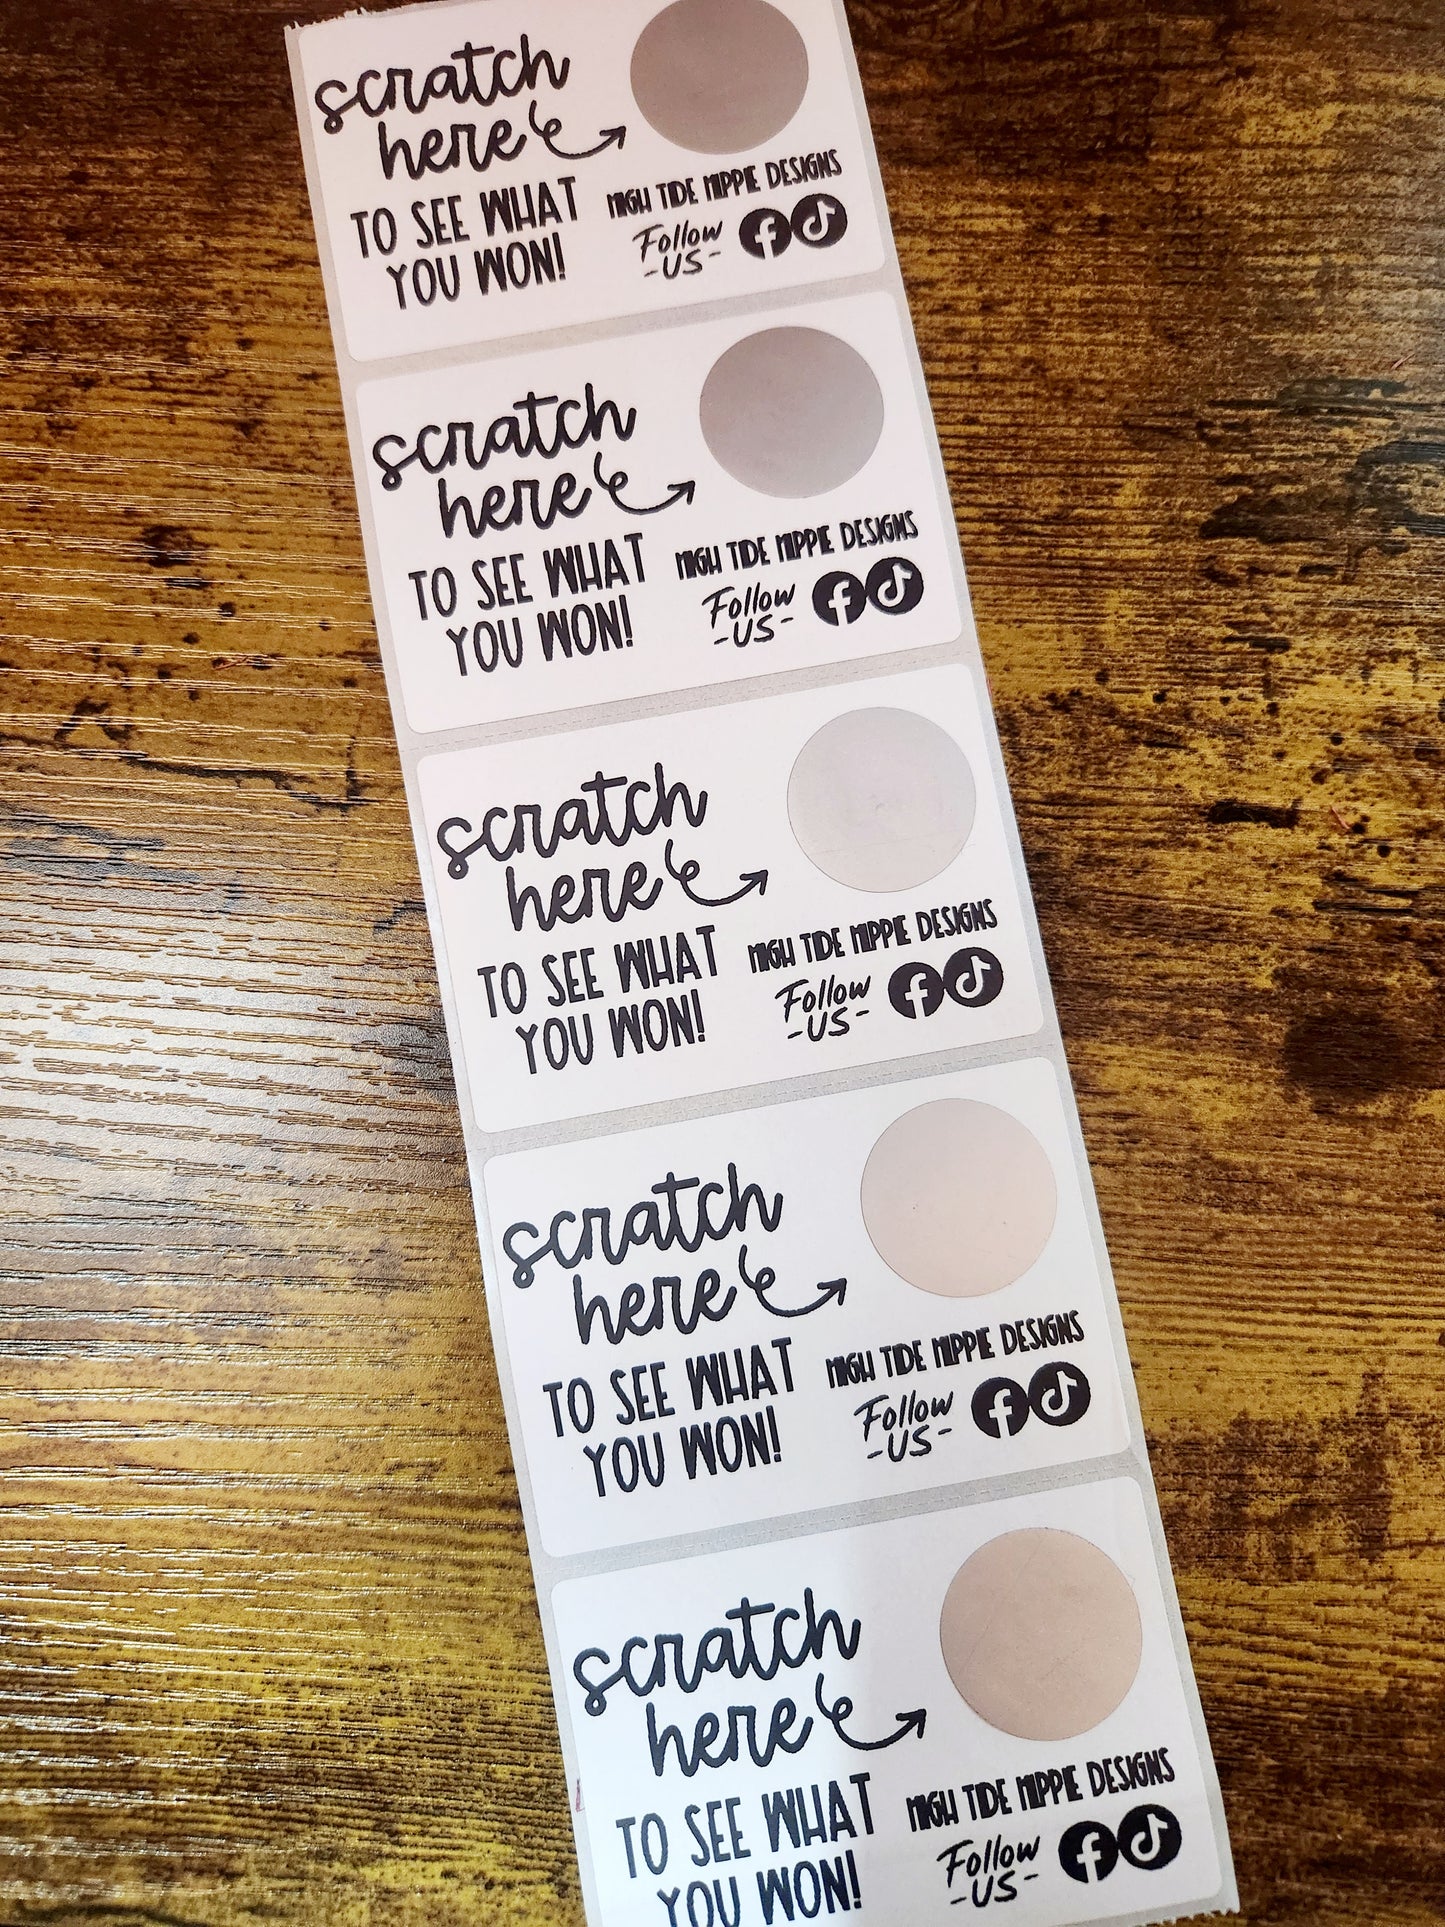 scratch
here
TO SEE WHAT
YOU WON!
HIGH TIDE HIPPIE DESIGNS
Follow
-US-
scratch
here
TO SEE WHAT
YOU WON!
HIGH TIDE HIPPIE DESIGNS
Follow
-US-
scratch
here
TO SEE WHAT
YOU WON!
HIGH TIDE HIPPIE DESIGNS
Follow
-US-
scratch
here
TO SEE WHAT
YOU WON!
HIGH TIDE HIPPIE DESIGNS
Follow
-US-
scratch
here
TO SEE WHAT
YOU WON!
HIGH TIDE HIPPIE DESIGNS
Follow
-US-